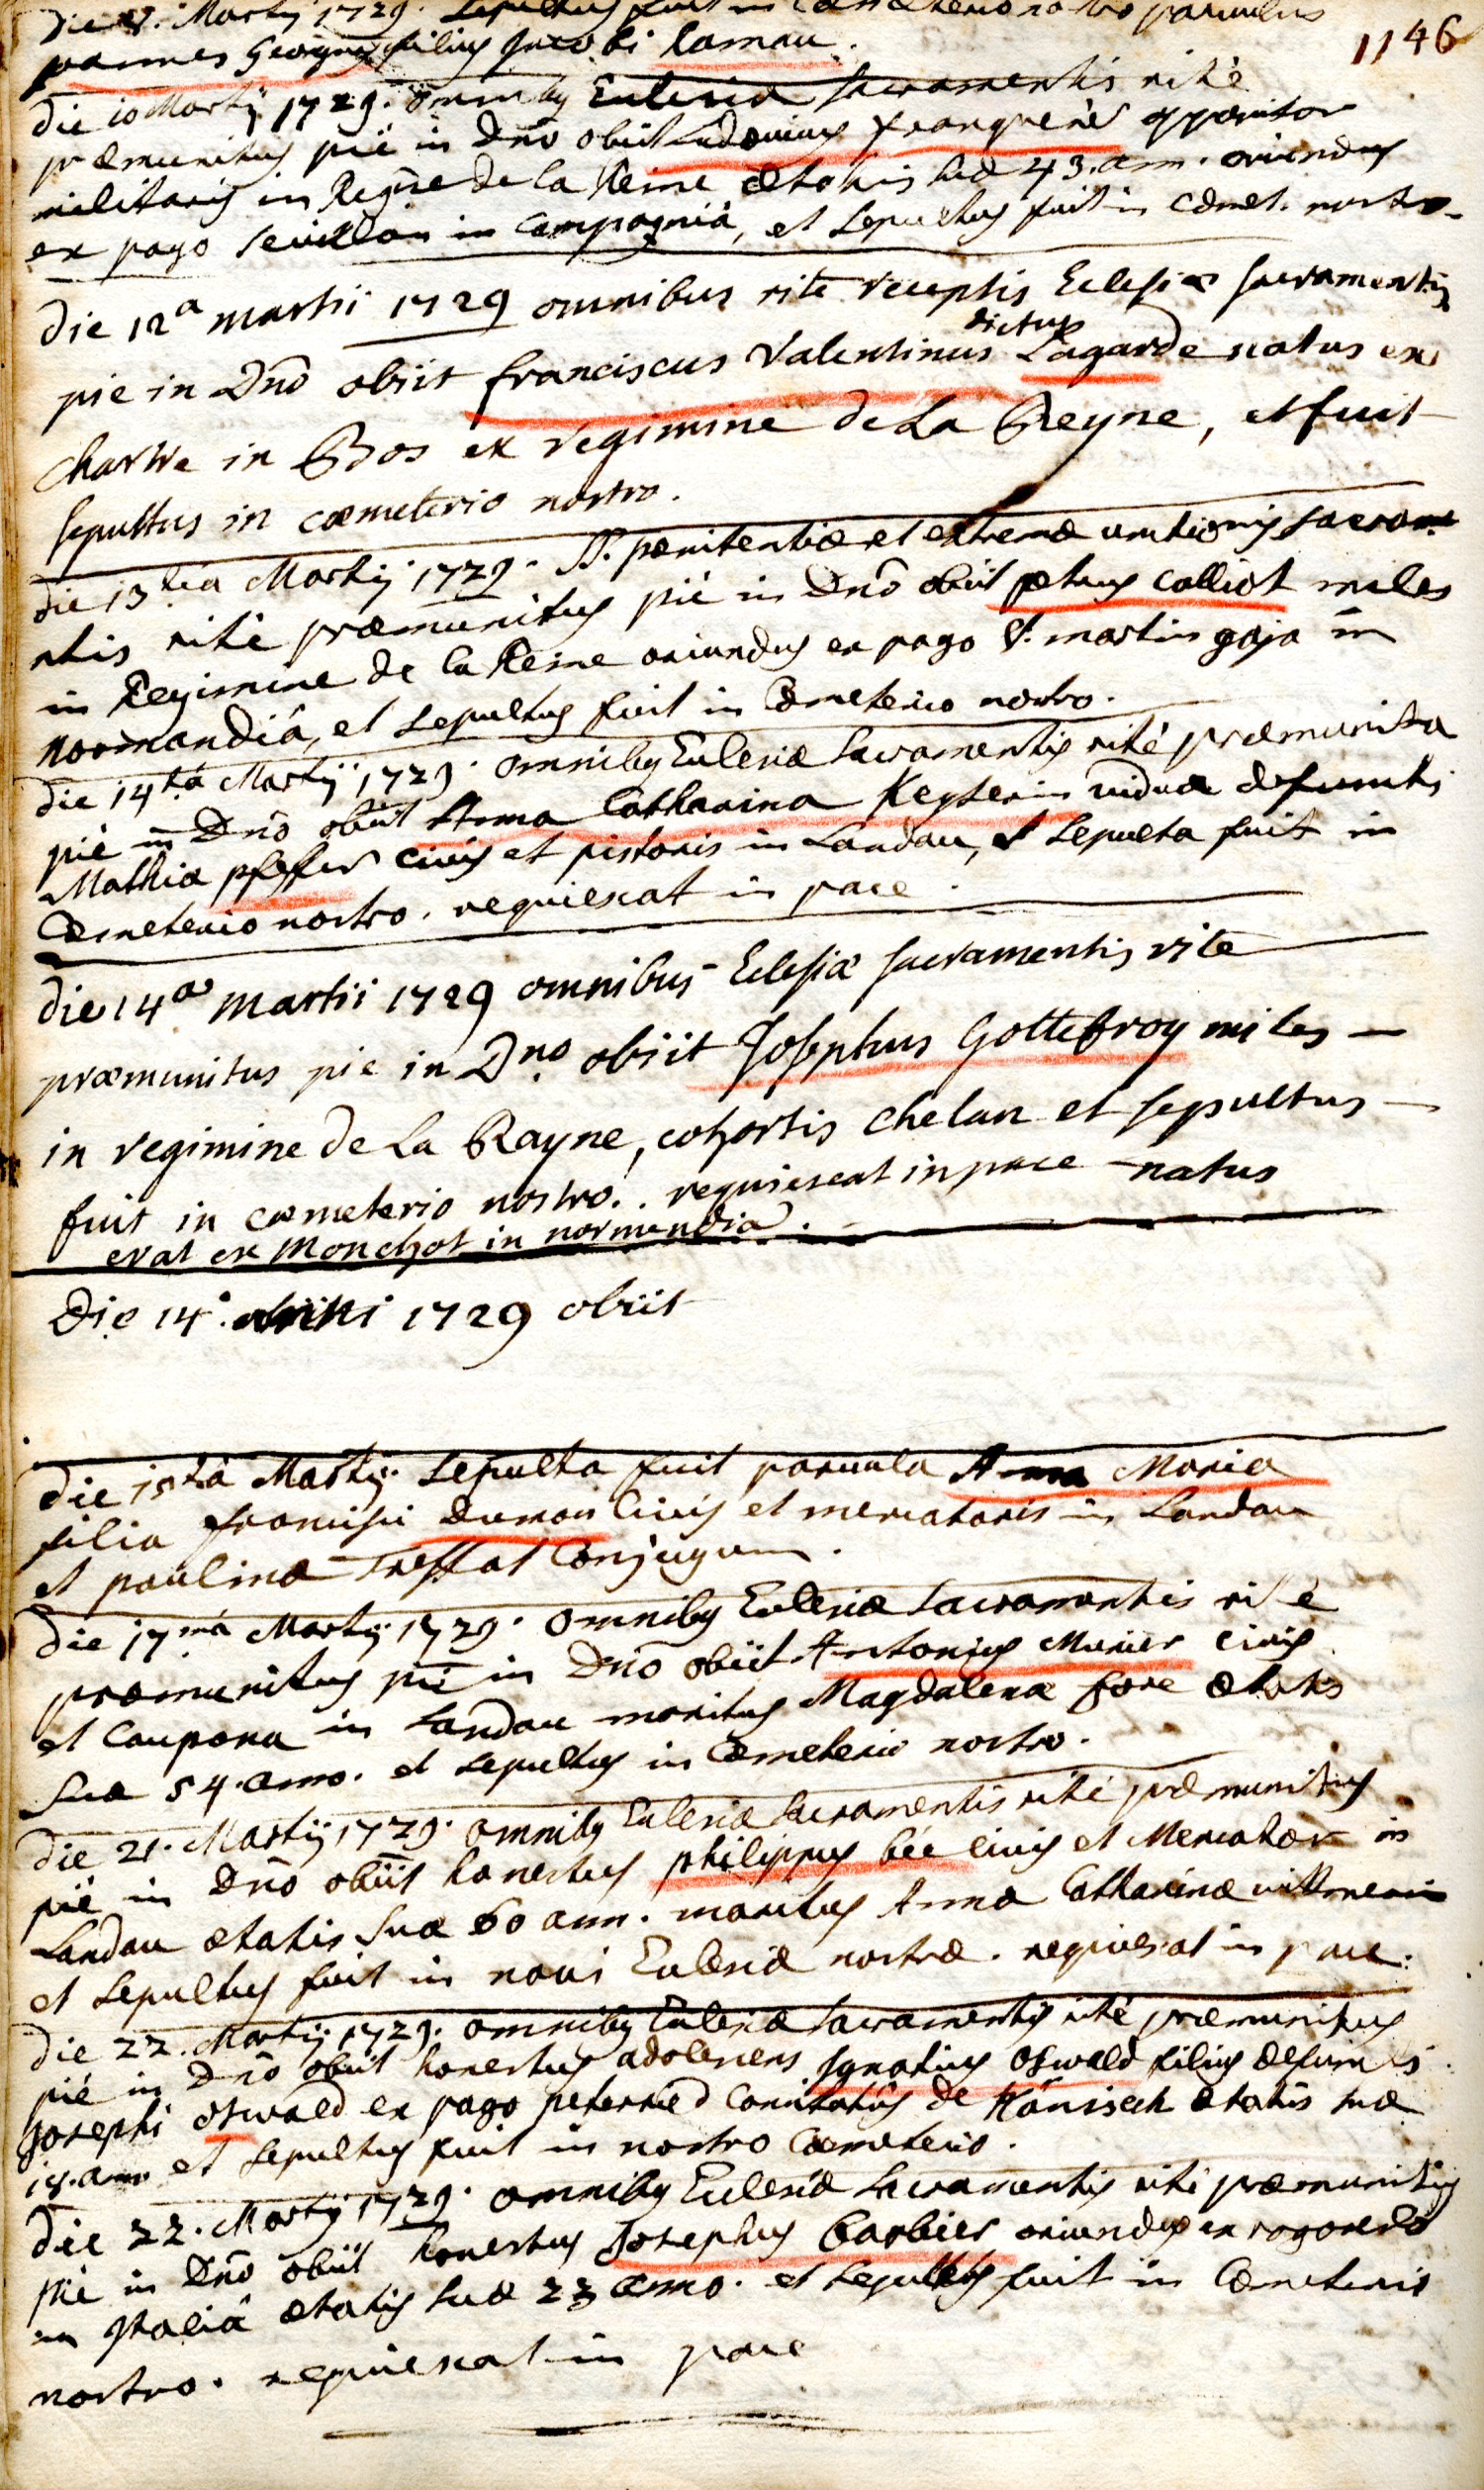 1146
Die 8. Martij 1729. Sepultus fuit in Cœmeterio nostro parvulus
joannes Georgius filius Jacobi Camau.
Die 10 Martij 1729. omnibg Eclesiæ sacramentis ritè
præmunitus piè in Dno obiit Ludovicus franquené apparitor
militaris in Regne de la Reine ætatis suæ 43. ann. oriundus
ex pago Sevillon in Campagniâ, et Sepultus fuit in Cœmet. nostro
Die 12a martii 1729 omnibus rite receptis Eclesiæ sacramentis
pie in Dno obiit franciscus Valentinus dictus Lagarde natus ex
chartre in Bos ex regimine de La Reyne, et fuit
sepultus in cœmeterio nostro.
die 13tia Martij 1729. SS. pœnitentiæ et extremæ unctionis sacrame
ntis ritè præmunitus piè in Dno obiit petrus Colliot miles
in Regimine de la Reine oriundus ex pago S. martin gaja in
normandiâ, et sepultus fuit in Cœmeterio nostro.
die 14ta Martij 1729. omnibg Eclesiæ Sacramentis ritè præmunita
piè in Dno obiit Anna Catharina Keyserin vidua defuncti
Mathiæ pfeffer civis et pistoris in Landau, et Sepulta fuit in
Cœmeterio nostro. requiescat in pace.
Die 14a Martii 1729 omnibus Eclesiæ sacramentis rite
præmunitus pie in Dno obiit Josephus Gottefroy miles
in regimine de La Rayne, cohortis chelan et sepultus
fuit in cœmeterio nostro.. requiescat in pace natus
erat ex Monchot in normandia.
Die 14. 1729 obiit
die 15ta Martij. Sepulta fuit parvula Anna Maria
filia francisci Dumon Civis et mercatoris in Landau
et paulinæ Treffat Conjugum.
Die 17ma Martij 1729. omnibg Eclesiæ Sacramentis ritè
præmunitus piè in Dno obiit Antonius Munier civis
et Caupona in Landau maritus Magdalenæ fore ætatis
Suæ 54. anno. et sepultus in Cœmeterio nostro.
die 21. Martij 1729. omnibg Eclesiæ Sacramentis ritè præmunitus
piè in Dno obiit honestus philippus bée civis et Mercator in
Landau ætatis Suæ 60 ann. maritus Annæ Catharinæ
et sepultus fuit in navi Eclesiæ nostræ. requiescat in pace.
die 22. Martij 1729. omnibg Eclesiæ Sacramentis ritè præmunitus
piè in Dno obiit honestus adolescens Ignatius Oswald filius defuncti
Josephi Oswald ex pago peterried Comitatûs de Hänisech ætatis suæ
et sepultus fuit in nostro Cœmeterio.
die 22. Martij 1729. omnibg Eclesiæ Sacramentis ritè præmunitus
piè in Dno obiit honestus Josephus barbier oriundus ex
in Italiâ ætatis suæ 23 anno. et sepultus fuit in Cœmeterio
nostro. requiescat in pace